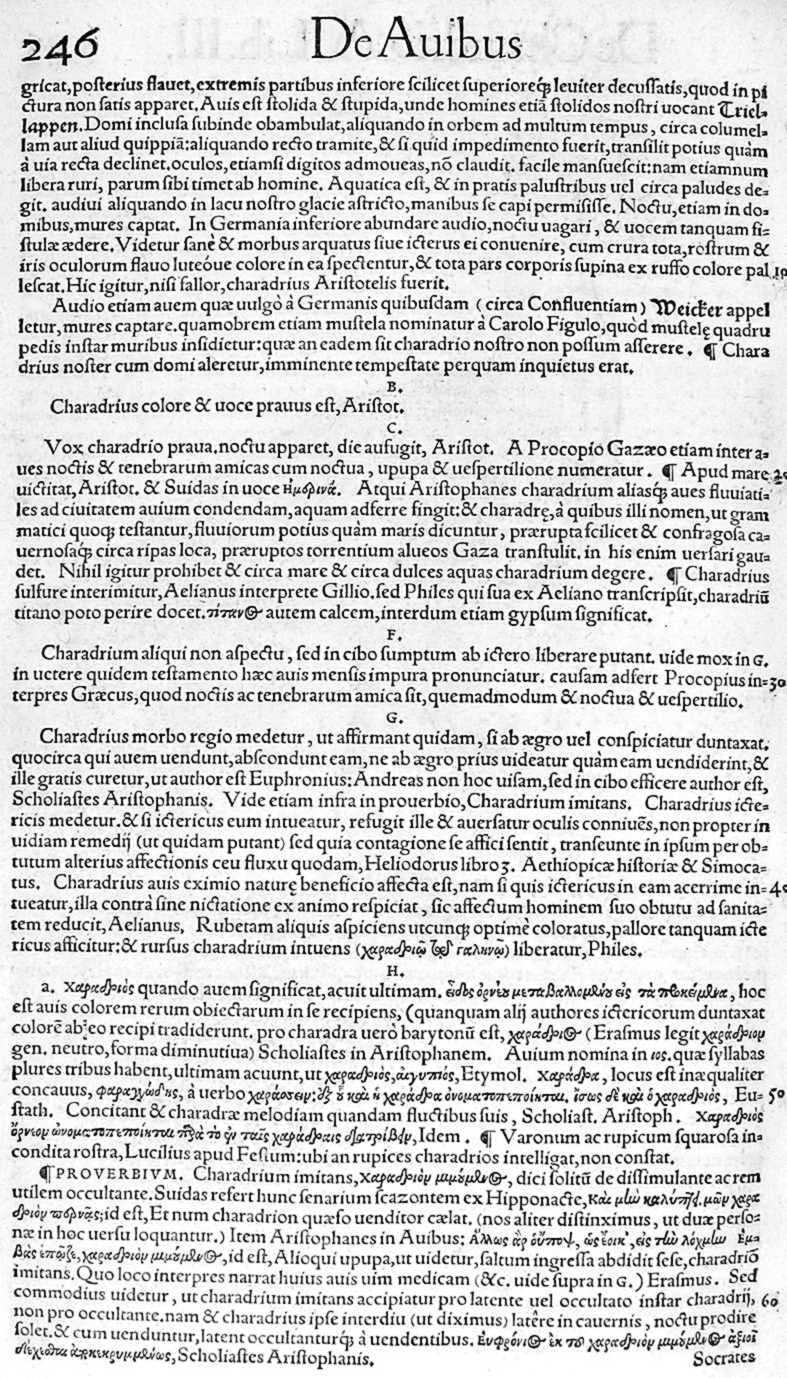 246 De Auibus
gricat, posterius flauet, extremis partibus inferiore scilicet superioreq́; leuiter decussatis, quod in pi
ctura non satis apparet. Auis est stolida & stupida, unde homines etiã stolidos nostri uocant Triel⸗
lappen. Domi inclusa subinde obambulat, aliquando in orbem ad multum tempus, circa columel⸗
lam aut aliud quippiã: aliquando recto tramite, & si quid impedimento fuerit, transilit potius quàm
à uia recta declinet. oculos, etiamsi digitos admoueas, nõ claudit. facile mansuescit: nam etiamnum
libera ruri, parum sibi timet ab homine. Aquatica est, & in pratis palustribus uel circa paludes de⸗
git. audiui aliquando in lacu nostro glacie astricto, manibus se capi permisisse. Noctu, etiam in do⸗
mibus, mures captat. In Germania inferiore abundare audio, noctu uagari, & uocem tanquam fi⸗
stulæ ædere. Videtur sanè & morbus arquatus siue icterus ei conuenire, cum crura tota, rostrum &
iris oculorum flauo luteóue colore in ea spectentur, & tota pars corporis supina ex ruffo colore pal 10
lescat. Hic igitur, nisi fallor, charadrius Aristotelis fuerit.
Audio etiam auem quæ uulgò à Germanis quibusdam (circa Confluentiam) Weicker appel
letur, mures captare. quamobrem etiam mustela nominatur à Carolo Figulo, quòd mustelę quadru
pedis instar muribus insidietur: quæ an eadem sit charadrio nostro non possum asserere. ¶ Chara
drius noster cum domi aleretur, imminente tempestate perquam inquietus erat.
B.
Charadrius colore & uoce prauus est, Aristot.
C.
Vox charadrio praua. noctu apparet, die aufugit, Aristot. A Procopio Gazæo etiam inter a⸗
ues noctis & tenebrarum amicas cum noctua, upupa & uespertilione numeratur. ¶ Apud mare 20
uictitat, Aristot. & Suidas in uoce Ἡμερινά. Atqui Aristophanes charadrium aliasq́; aues fluuiati⸗
les ad ciuitatem auium condendam, aquam adferre fingit: & charadrę, à quibus illi nomen, ut gram
matici quoq; testantur, fluuiorum potius quàm maris dicuntur, prærupta scilicet & confragosa ca⸗
uernosaq́; circa ripas loca, præruptos torrentium alueos Gaza transtulit. in his enim uersari gau⸗
det. Nihil igitur prohibet & circa mare & circa dulces aquas charadrium degere. ¶ Charadrius
sulfure interimitur, Aelianus interprete Gillio. sed Philes qui sua ex Aeliano transcripsit, charadriũ
titano poto perire docet. τίτανος autem calcem, interdum etiam gypsum significat.
F.
Charadrium aliqui non aspectu, sed in cibo sumptum ab ictero liberare putant. uide mox in G.
in uetere quidem testamento hæc auis mensis impura pronunciatur. causam adfert Procopius in⸗ 30
terpres Græcus, quod noctis ac tenebrarum amica sit, quemadmodum & noctua & uespertilio.
G.
Charadrius morbo regio medetur, ut affirmant quidam, si ab ægro uel conspiciatur duntaxat.
quocirca qui auem uendunt, abscondunt eam, ne ab ægro prius uideatur quàm eam uendiderint, &
ille gratis curetur, ut author est Euphronius: Andreas non hoc uisam, sed in cibo efficere author est,
Scholiastes Aristophanis. Vide etiam infra in prouerbio, Charadrium imitans. Charadrius icte⸗
ricis medetur. & si ictericus eum intueatur, refugit ille & auersatur oculis conniuẽs, non propter in
uidiam remedij (ut quidam putant) sed quia contagione se affici sentit, transeunte in ipsum per ob⸗
tutum alterius affectionis ceu fluxu quodam, Heliodorus libro 3. Aethiopicæ historiæ & Simoca⸗
tus. Charadrius auis eximio naturę beneficio affecta est, nam si quis ictericus in eam acerrime in⸗ 40
tueatur, illa contrà sine nictatione ex animo respiciat, sic affectum hominem suo obtutu ad sanita⸗
tem reducit, Aelianus. Rubetam aliquis aspiciens utcunq; optimè coloratus, pallore tanquam icte
ricus afficitur: & rursus charadrium intuens liberatur, Philes.
H.
a. Χαραδριὸς quando auem significat, acuit ultimam. εἶδος ὀρνέου μεταβαλλομένου εἰς τὰ προκείμενα, hoc
est auis colorem rerum obiectarum in se recipiens, (quanquam alij authores ictericorum duntaxat
colorẽ ab eo recipi tradiderunt. pro charadra uerò barytonũ est, χαράδριος (Erasmus legit χαράδριον
gen. neutro, forma diminutiua) Scholiastes in Aristophanem. Auium nomina in ιος. quæ syllabas
plures tribus habent, ultimam acuunt, ut χαραδριός, αἰγυπιός, Etymol. Χαράδρα, locus est inæqualiter
concauus, φαραγγώδης, à uerbo χαράσσειν: ἐξ οὗ καὶ ἡ χαράδρα ὀνοματοπεποίηται. ἴσως δὲ καὶ ὁ χαραδριός, Eu⸗ 50
stath. Concitant & charadræ melodiam quandam fluctibus suis, Scholiast. Aristoph. Χαραδριὸς
ὄρνεον ὠνοματοπεποίηται παρὰ τὸ ἐν ταῖς χαράδραις διατρίβειν, Idem. ¶ Varonum ac rupicum squarosa in⸗
condita rostra, Lucilius apud Festum: ubi an rupices charadrios intelligat, non constat.
¶ PROVERBIVM. Charadrium imitans, Χαραδριὸν μιμούμενος, dici solitũ de dissimulante ac rem
utilem occultante. Suidas refert hunc senarium scazontem ex Hipponacte, Καὶ μὴν καλύπτει. μῶν χαρα
δριὸν περνᾷς; id est, Et num charadrion quæso uenditor cælat. (nos aliter distinximus, ut duæ perso⸗
næ in hoc uersu loquantur.) Item Aristophanes in Auibus: Ἄλλως ἄρ᾽ οὕποψ, ὡς ἔοικ᾽, εἰς τὴν λόχμην Ἐμ⸗
βὰς ἐπῶζε, χαραδριὸν μιμούμενος, id est, Alioqui upupa, ut uidetur, saltum ingressa abdidit sese, charadriõ
imitans. Quo loco interpres narrat huius auis uim medicam (&c. uide supra in G.) Erasmus. Sed
commodius uidetur, ut charadrium imitans accipiatur pro latente uel occultato instar charadrij, 60
non pro occultante. nam & charadrius ipse interdiu (ut diximus) latêre in cauernis, noctu prodire
solet. & cum uenduntur, latent occultanturq́; à uendentibus. Εὐφρόνιος ἐκ τοῦ χαραδριὸν μιμούμενος ἀξιοῖ
δέχεσθαι ἀποκεκρυμμένως, Scholiastes Aristophanis.
Socrates